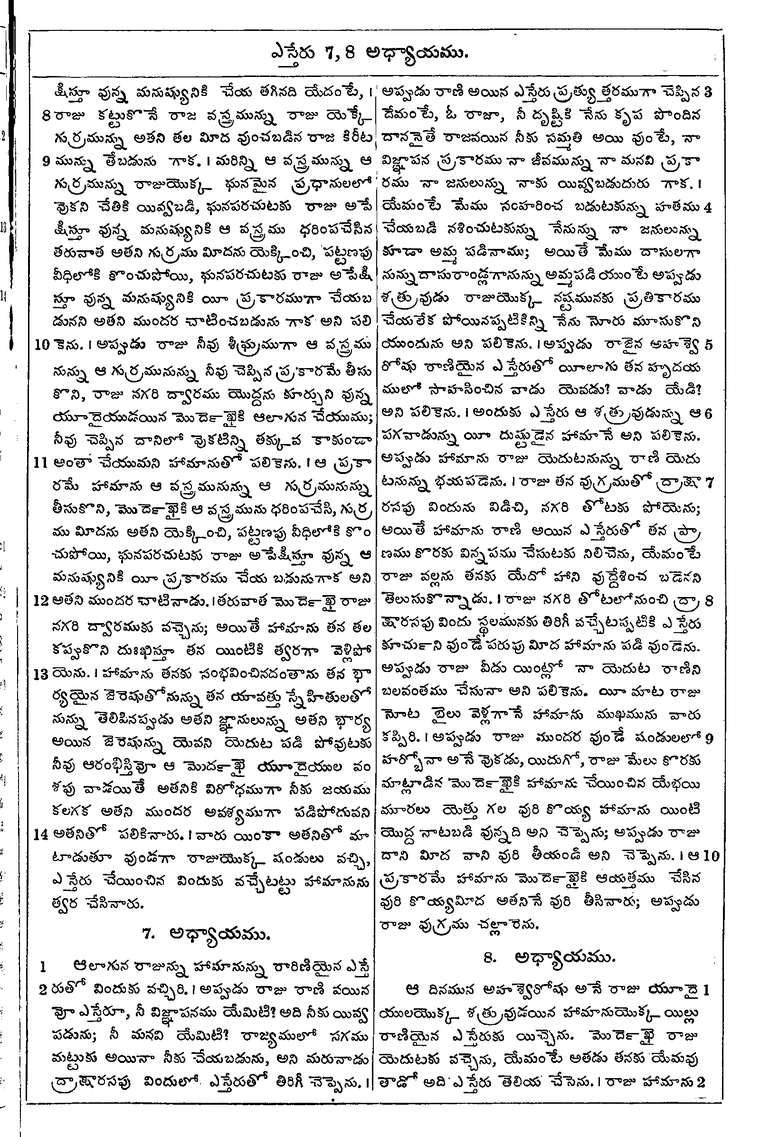 ఎస్తేరు 7, 8 అధ్యాయము.
క్షిస్తూ వున్న మనుష్యునికి చేయ తగినది యేదంటే, ।
8 రాజు కట్టుకొనే రాజ వస్త్రమున్ను రాజు యెక్కే
గుర్రమున్ను అతని తల మీద వుంచబడిన రాజ కిరీట
9 మున్ను తేబడును గాక. । మరిన్ని ఆ వస్త్రమున్ను ఆ
గుర్రమున్ను రాజుయొక్క ఘనమైన ప్రధానులలో
వొకని చేతికి యివ్వబడి, ఘనపరచుటకు రాజు అపే
క్షిస్తూ వున్న మనుష్యునికి ఆ వస్త్రము ధరింపచేసిన
తరువాత అతని గుర్రము మీదను యెక్కించి, పట్టణపు
వీధిలోకి కొంచుపోయి, ఘనపరచుటకు రాజు అపేక్షి
స్తూ వున్న మనుష్యునికి యీ ప్రకారముగా చేయబ
డునని అతని ముందర చాటించబడును గాక అని పలి
10 కెను. । అప్పుడు రాజు నీవు శీఘ్రముగా ఆ వస్త్రము
నున్ను ఆ గుర్రమునున్ను నీవు చెప్పిన ప్రకారమే తీసు
కొని, రాజు నగరి ద్వారము యొద్దను కూర్చుని వున్న
యూదైయుడయిన మొర్దెఖైకి ఆలాగున చేయుము;
నీవు చెప్పిన దానిలో వొకటిన్ని తక్కువ కాకుండా
11 అంతా చేయుమని హామానుతో పలికెను. । ఆ ప్రకా
రమే హామాను ఆ వస్త్రమునున్ను ఆ గుర్రమునున్ను
తీసుకొని, మొర్దెఖైకి ఆ వస్త్రమును ధరింపచేసి, గుర్ర
ము మీదను అతని యెక్కించి, పట్టణపు వీధిలోకి కొం
చుపోయి, ఘనపరచుటకు రాజు అపేక్షిస్తూ వున్న ఆ
మనుష్యునికి యీ ప్రకారము చేయ బడునుగాక అని
12 అతని ముందర చాటినాడు. । తరువాత మొర్దెఖై రాజు
నగరి ద్వారముకు వచ్చెను; అయితే హామాను తన తల
కప్పుకొని దుఃఖిస్తూ తన యింటికి త్వరగా వెళ్లిపో
13 యెను. । హామాను తనకు సంభవించినదంతాను తన భా
ర్యయైన జెరెషుతోనున్ను తన యావత్తు స్నేహితులతో
నున్ను తెలిపినప్పుడు అతని జ్ఞానులున్ను అతని భార్య
అయిన జెరెషున్ను యెవని యెదుట పడి పోవుటకు
నీవు ఆరంభిస్తివో ఆ మొర్దెఖై యూదైయుల వం
శపు వాడయితే అతనికి విరోధముగా నీకు జయము
కలగక అతని ముందర అవశ్యముగా పడిపోదువని
14 అతనితో పలికినారు. । వారు యింకా అతనితో మా
టాడుతూ వుండగా రాజుయొక్క షండులు వచ్చి,
ఎస్తేరు చేయించిన విందుకు వచ్చేటట్టు హామానును
త్వర చేసినారు.
7. అధ్యాయము.
1 ఆలాగున రాజున్ను హామానున్ను రారిణియైన ఎస్తే
2 రుతో విందుకు వచ్చిరి. । అప్పుడు రాజు రాణి వయిన
వో ఎస్తేరూ, నీ విజ్ఞాపనము యేమిటి? అది నీకు యివ్వ
పడును; నీ మనవి యేమిటి? రాజ్యములో సగము
మట్టుకు అయినా నీకు చేయబడును, అని మరునాడు
ద్రాక్షారసపు విందులో ఎస్తేరుతో తిరిగీ చెప్పెను. ।
అప్పుడు రాణి అయిన ఎస్తేరు ప్రత్యుత్తరముగా చెప్పిన 3
దేమంటే, ఓ రాజా, నీ దృష్టికి నేను కృప పొందిన
దాననైతే రాజవయిన నీకు సమ్మతి అయి వుంటే, నా
విజ్ఞాపన ప్రకారము నా జీవమున్ను నా మనవి ప్రకా
రము నా జనులున్ను నాకు యివ్వబడుదురు గాక. ।
యేమంటే మేము సంహరించ బడుటకున్ను హతము 4
చేయబడి నశించుటకున్ను నేనున్ను నా జనులున్ను
కూడా అమ్మ పడినాము; అయితే మేము దాసులగా
నున్ను దాసురాండ్లగానున్ను అమ్మపడి యుంటే అప్పుడు
శత్రువుడు రాజుయొక్క నష్టమునకు ప్రతికారము
చేయలేక పోయినప్పటికిన్ని నేను నోరు మూసుకొని
యుందును అని పలికెను. । అప్పుడు రాజైన అహశ్వె 5
రోషు రాణియైన ఎస్తేరుతో యీలాగు తన హృదయ
ములో సాహసించిన వాడు యెవడు? వాడు యేడి?
అని పలికెను. । అందుకు ఎస్తేరు ఆ శత్రువుడున్ను ఆ 6
పగవాడున్ను యీ దుష్టుడైన హామానే అని పలికెను.
అప్పుడు హామాను రాజు యెదుటనున్ను రాణి యెదు
టనున్ను భయపడెను. । రాజు తన వుగ్రముతో ద్రాక్షా 7
రసపు విందును విడిచి, నగరి తోటకు పోయెను;
అయితే హామాను రాణి అయిన ఎస్తేరుతో తన ప్రా
ణము కొరకు విన్నపము చేసుటకు నిలిచెను, యేమంటే
రాజు వల్లను తనకు యేదో హాని వుద్దేశించ బడెనని
తెలుసుకొన్నాడు. । రాజు నగరి తోటలోనుంచి ద్రా 8
క్షారసపు విందు స్థలమునకు తిరిగీ వచ్చేటప్పటికి ఎస్తేరు
కూర్చుని వుండే పరుపు మీద హామాను పడి వుండెను.
అప్పుడు రాజు వీడు యింట్లో నా యెదుట రాణిని
బలవంతము చేసునా అని పలికెను. యీ మాట రాజు
నోట బైలు వెళ్లగానే హామాను ముఖమును వారు
కప్పిరి. । అప్పుడు రాజు ముందర వుండే షండులలో 9
హర్బోనా అనే వొకడు, యిదుగో, రాజు మేలు కొరకు
మాట్లాడిన మొర్దెఖైకి హామాను చేయించిన యేభయి
మూరలు యెత్తు గల వురి కొయ్య హామాను యింటి
యొద్ద నాటబడి వున్నది అని చెప్పెను; అప్పుడు రాజు
దాని మీద వాని వురి తీయండి అని చెప్పెను. । ఆ 10
ప్రకారమే హామాను మొర్దెఖైకి ఆయత్తము చేసిన
వురి కొయ్యమీద అతనినే వురి తీసినారు; అప్పుడు
రాజు వుగ్రము చల్లారెను.
8. అధ్యాయము.
ఆ దినమున అహశ్వెరోషు అనే రాజు యూదై 1
యులయొక్క శత్రువుడయిన హామానుయొక్క యిల్లు
రాణియైన ఎస్తేరుకు యిచ్చెను. మొర్దెఖై రాజు
యెదుటకు వచ్చెను, యేమంటే అతడు తనకు యేమవు
తాడో అది ఎస్తేరు తెలియ చేసెను. । రాజు హామాను 2